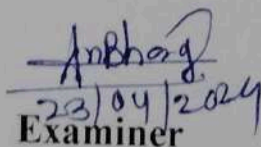 AnBhog
23/04/2024
Examiner